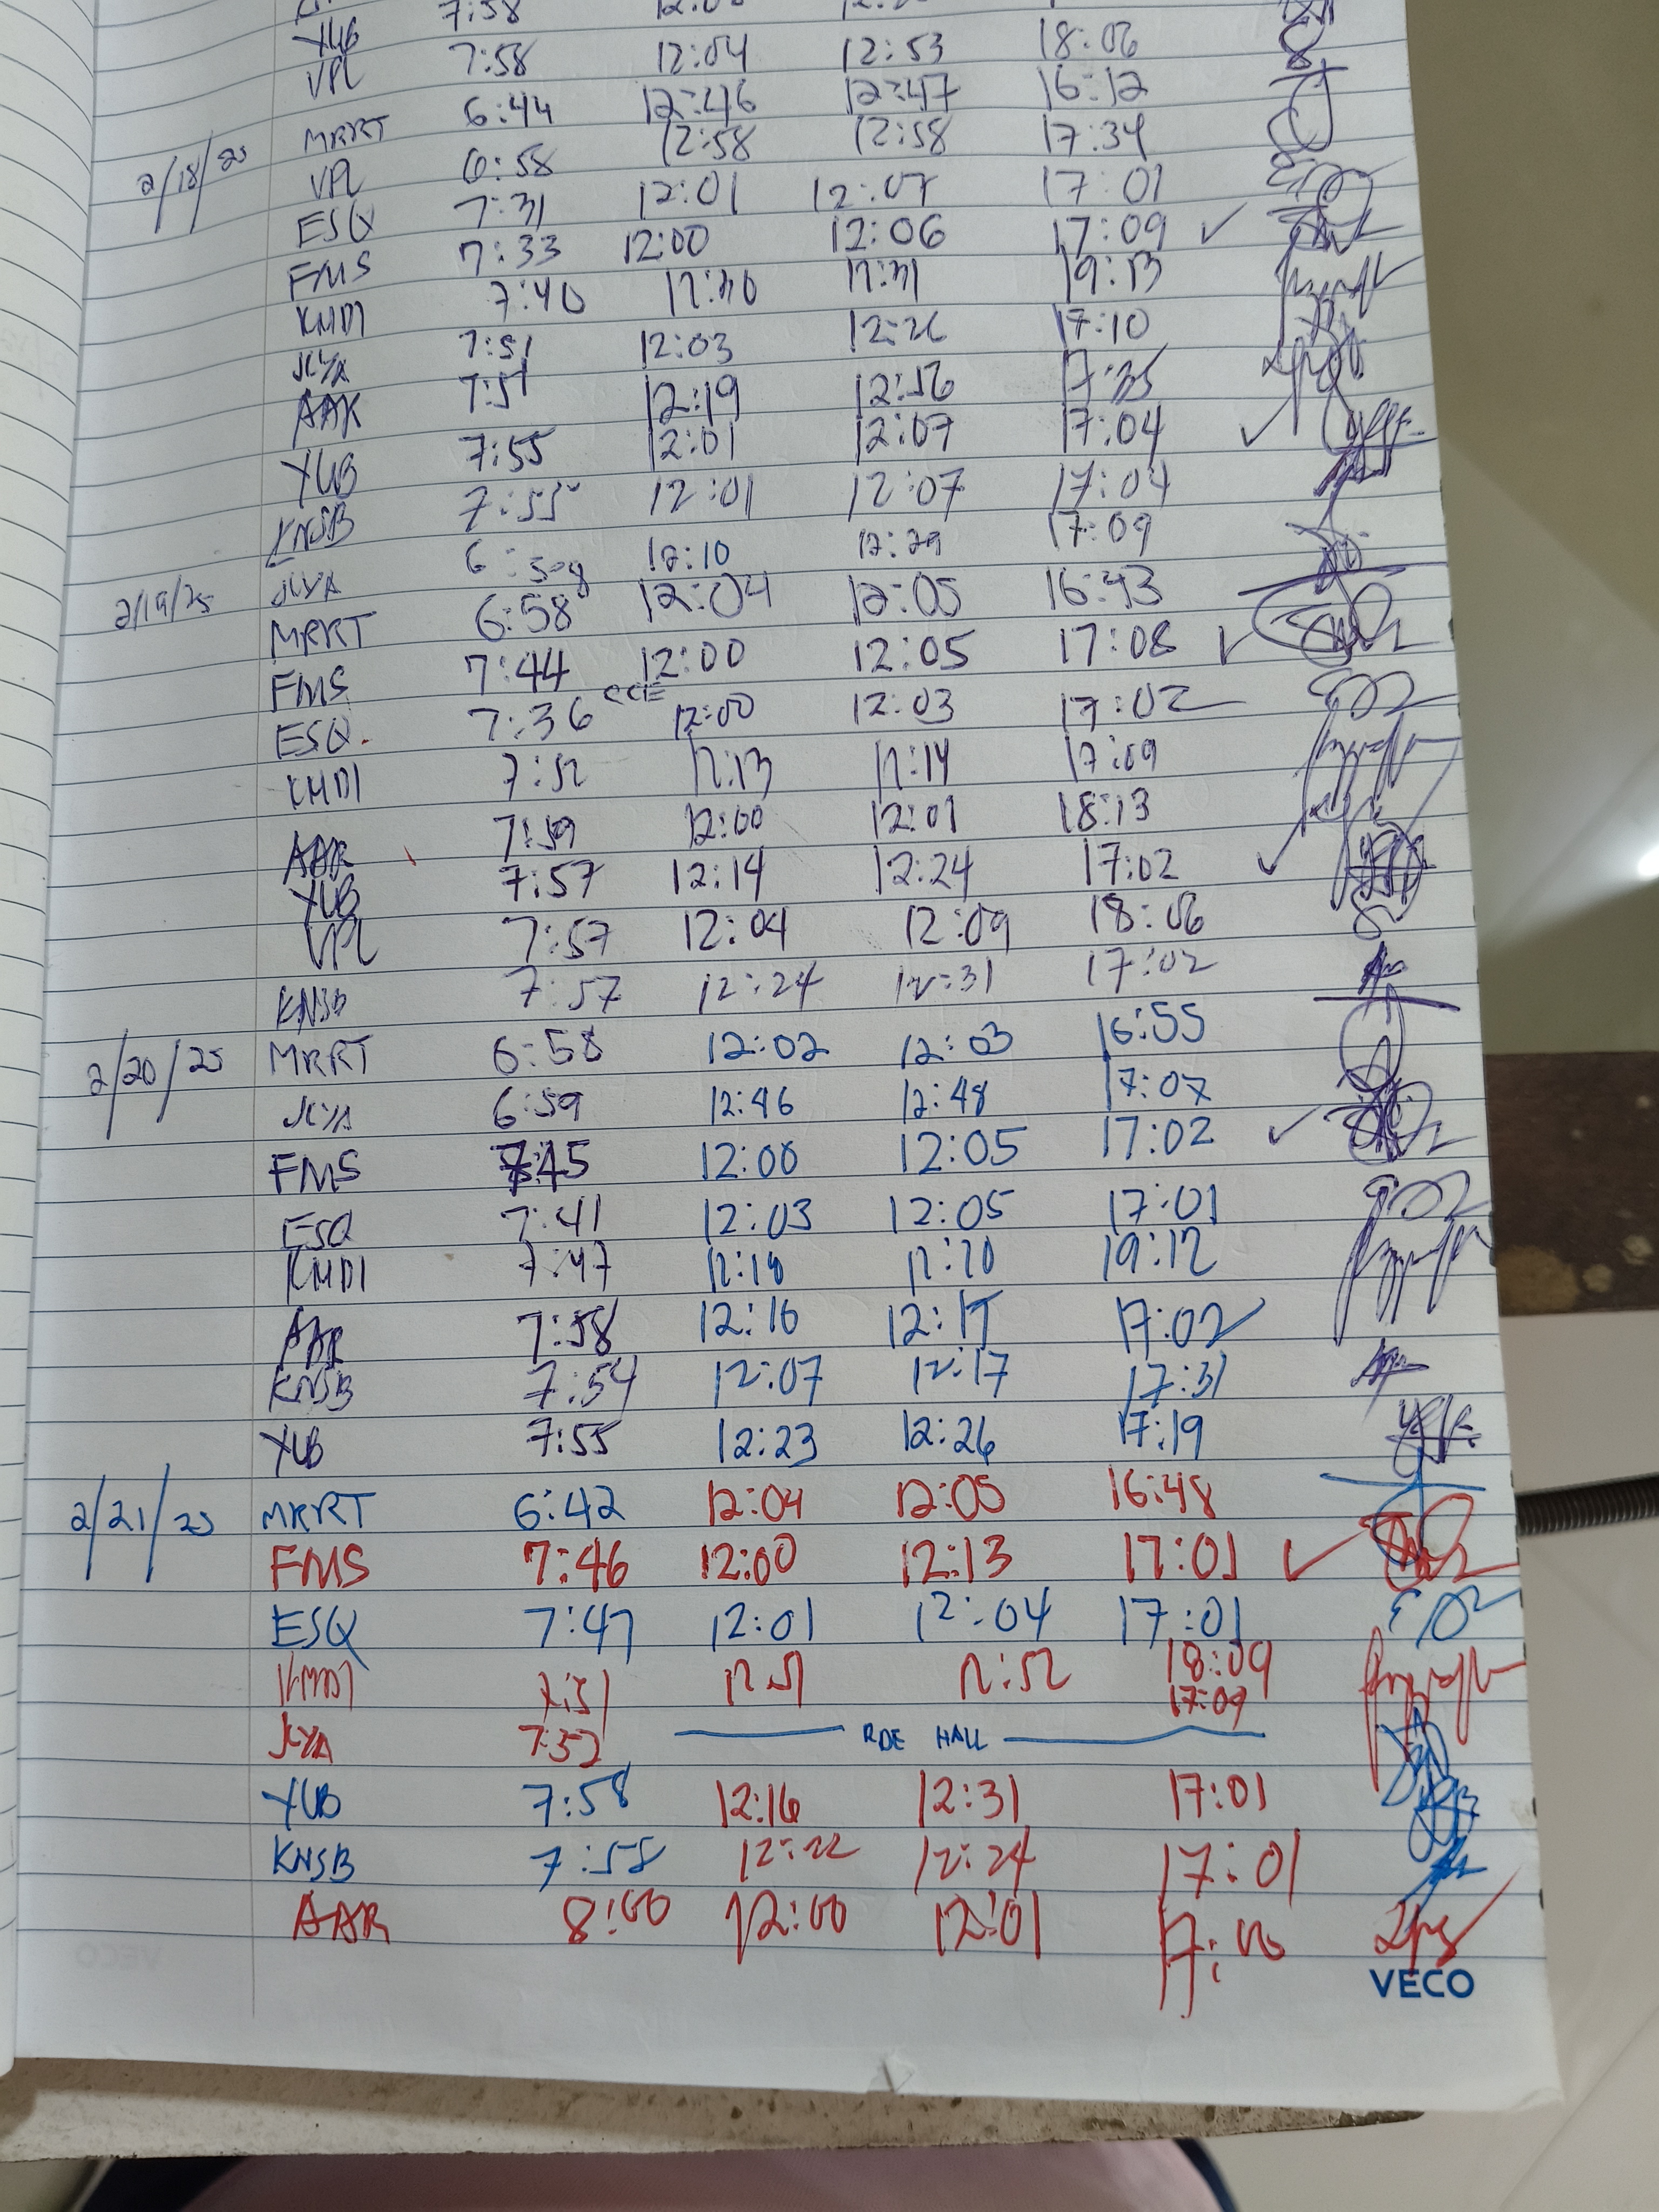 7:58
YUB 7:58 12:04 12:53 18:06
VPL
6:44 12:46 12:47 16:12
2/18/25 MRRT 6:58 12:58 12:58 17:34
VPL
ESQ 7:31 12:01 12:07 17:01
FMS 7:33 12:00 12:06 17:09 ✓
KMDI 7:40 12:30 12:31 19:13
JCYA 7:51 12:03 12:26 17:10
AAR 7:57 12:19 12:56 17:35
YUB 7:55 12:01 12:07 17:04 ✓
KNSB 7:55 12:01 12:07 17:04
2/19/25 JCYA 6:58 12:10 12:29 17:09
MRRT 6:58 12:04 12:05 16:43
FMS 7:44 12:00 12:05 17:08 ✓
ESQ. 7:36 12:00 12:03 17:02
KMDI 7:52 12:13 12:14 17:09
AAR 7:59 12:00 12:01 18:13
YUB 7:57 12:14 12:24 17:02 ✓
VPL 7:57 12:04 12:09 18:06
KNSB 7:57 12:24 12:31 17:02
2/20/25 MRRT 6:58 12:02 12:03 16:55
JCYA 6:59 12:46 12:48 17:07
FMS 7:45 12:00 12:05 17:02 ✓
ESQ 7:41 12:03 12:05 17:01
KMDI 7:47 12:18 12:20 19:12
AAR 7:58 12:16 12:17 17:02
KNSB 7:54 12:07 12:17 17:31
YUB 7:55 12:23 12:26 17:19
2/21/25 MRRT 6:42 12:04 12:05 16:48
FMS 7:46 12:00 12:13 17:01 ✓
ESQ 7:47 12:01 12:04 17:01
KMDI 7:51 12:51 12:52 18:09
JCYA 7:52 RDE HALL 17:09
YUB 7:58 12:16 12:31 17:01
KNSB 7:58 12:22 12:24 17:01
AAR 8:00 12:00 12:01 17:00
VECO